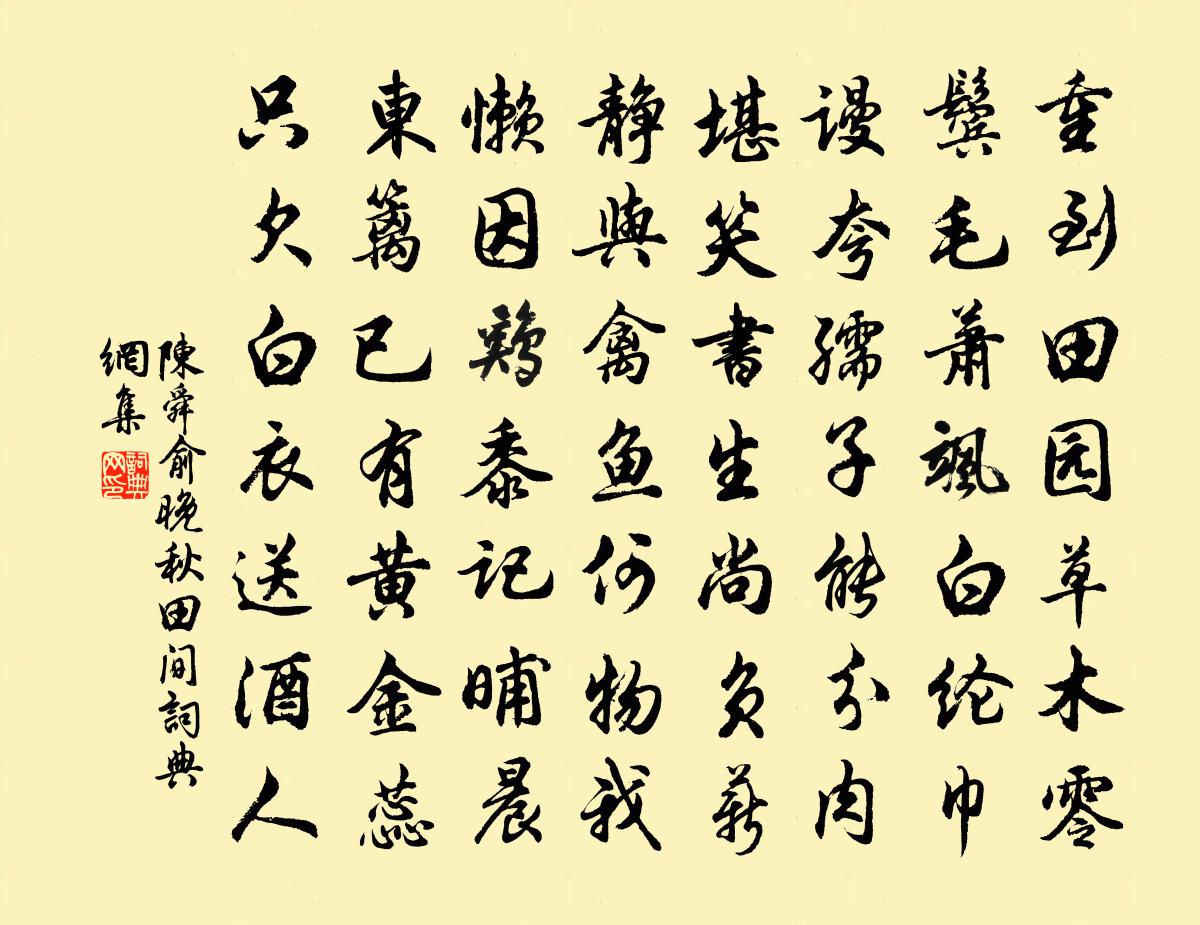 重到田园草木零
鬓毛萧飒白纶巾
谩夸孺子能分肉
堪笑書生尚负薪
静與禽鱼何物我
懒因鶏黍记晡晨
東篱已有黄金蕊
只欠白衣送酒人
陳舜俞晚秋田间詞典
網集
詞典
网印